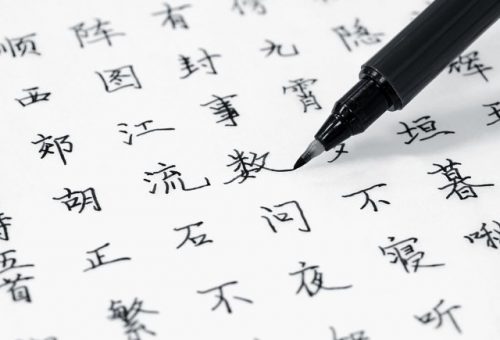 辉
隐垣暮
傍九霄不寝听
有封事数问夜
阵图江流石不
顺西郊胡正繁
五首